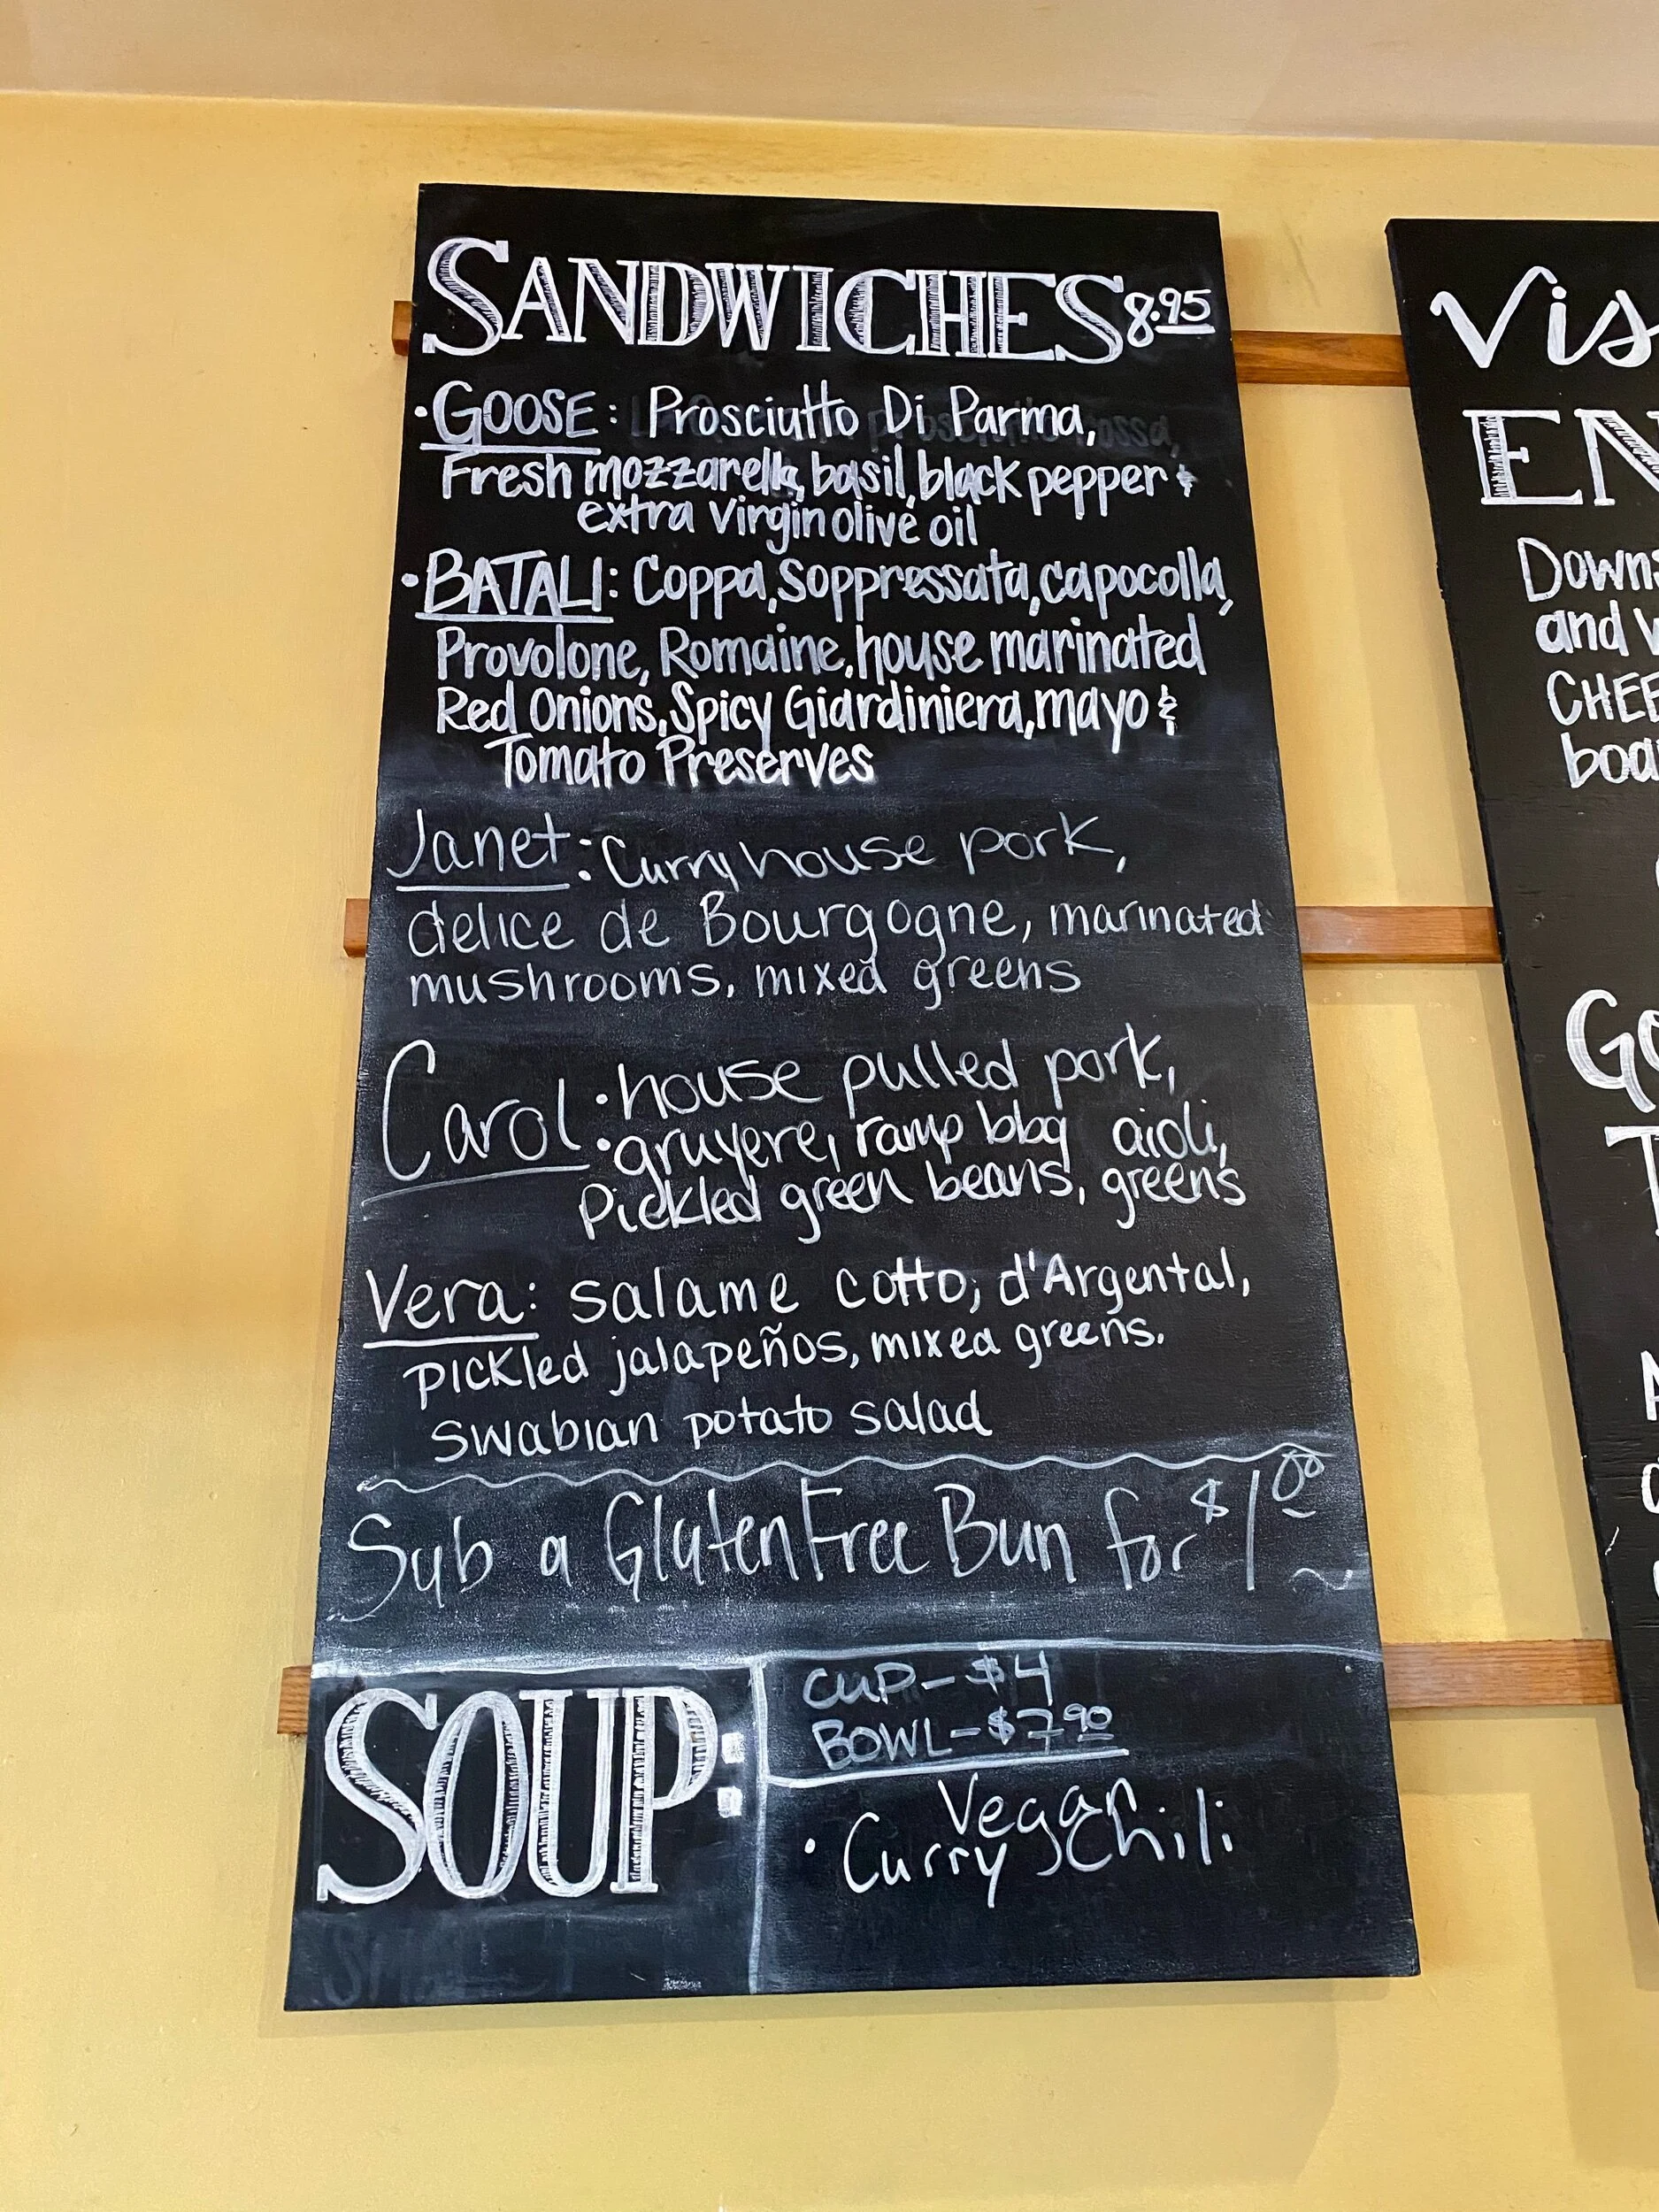 SANDWICHES 8.95
• GOOSE: Prosciutto Di Parma,
Fresh mozzarella, basil, black pepper &
extra virgin olive oil
• BATALI: Coppa, Soppressata, capocolla,
Provolone, Romaine, house marinated
Red Onions, Spicy Giardiniera, mayo &
Tomato Preserves
Janet: Curry house pork,
delice de Bourgogne, marinated
mushrooms, mixed greens
Carol: house pulled pork,
gruyere, ramp bbq aioli,
Pickled green beans, greens
Vera: salame cotto, d'Argental,
pickled jalapeños, mixed greens.
swabian potato salad
Sub a Gluten Free Bun for $1.00
SOUP:
CUP - $4
BOWL - $7.90
Vegan
• Curry Chili
Vis
EN
Downs
and v
CHEE
boa
Go
T
A